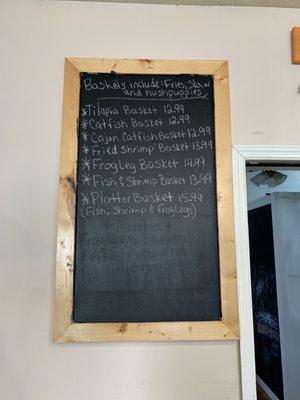 Baskets include: Fries, Slaw
and hushpuppies
*Tilapia Basket 12.99
*Catfish Basket 12.99
*Cajun Catfish Basket 12.99
*Fried Shrimp Basket 13.99
*Frog Leg Basket 14.99
*Fish & Shrimp Basket 13.99
*Platter Basket 15.99
(Fish, Shrimp & Frog Legs)